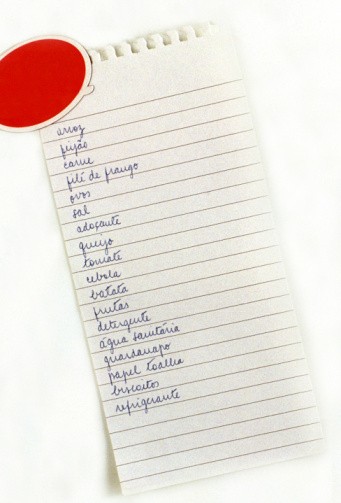 arroz
feijão
carne
filé de frango
ovos
sal
adoçante
queijo
tomate
cebola
batata
frutas
detergente
água sanitária
guardanapo
papel toalha
biscoitos
refrigerante